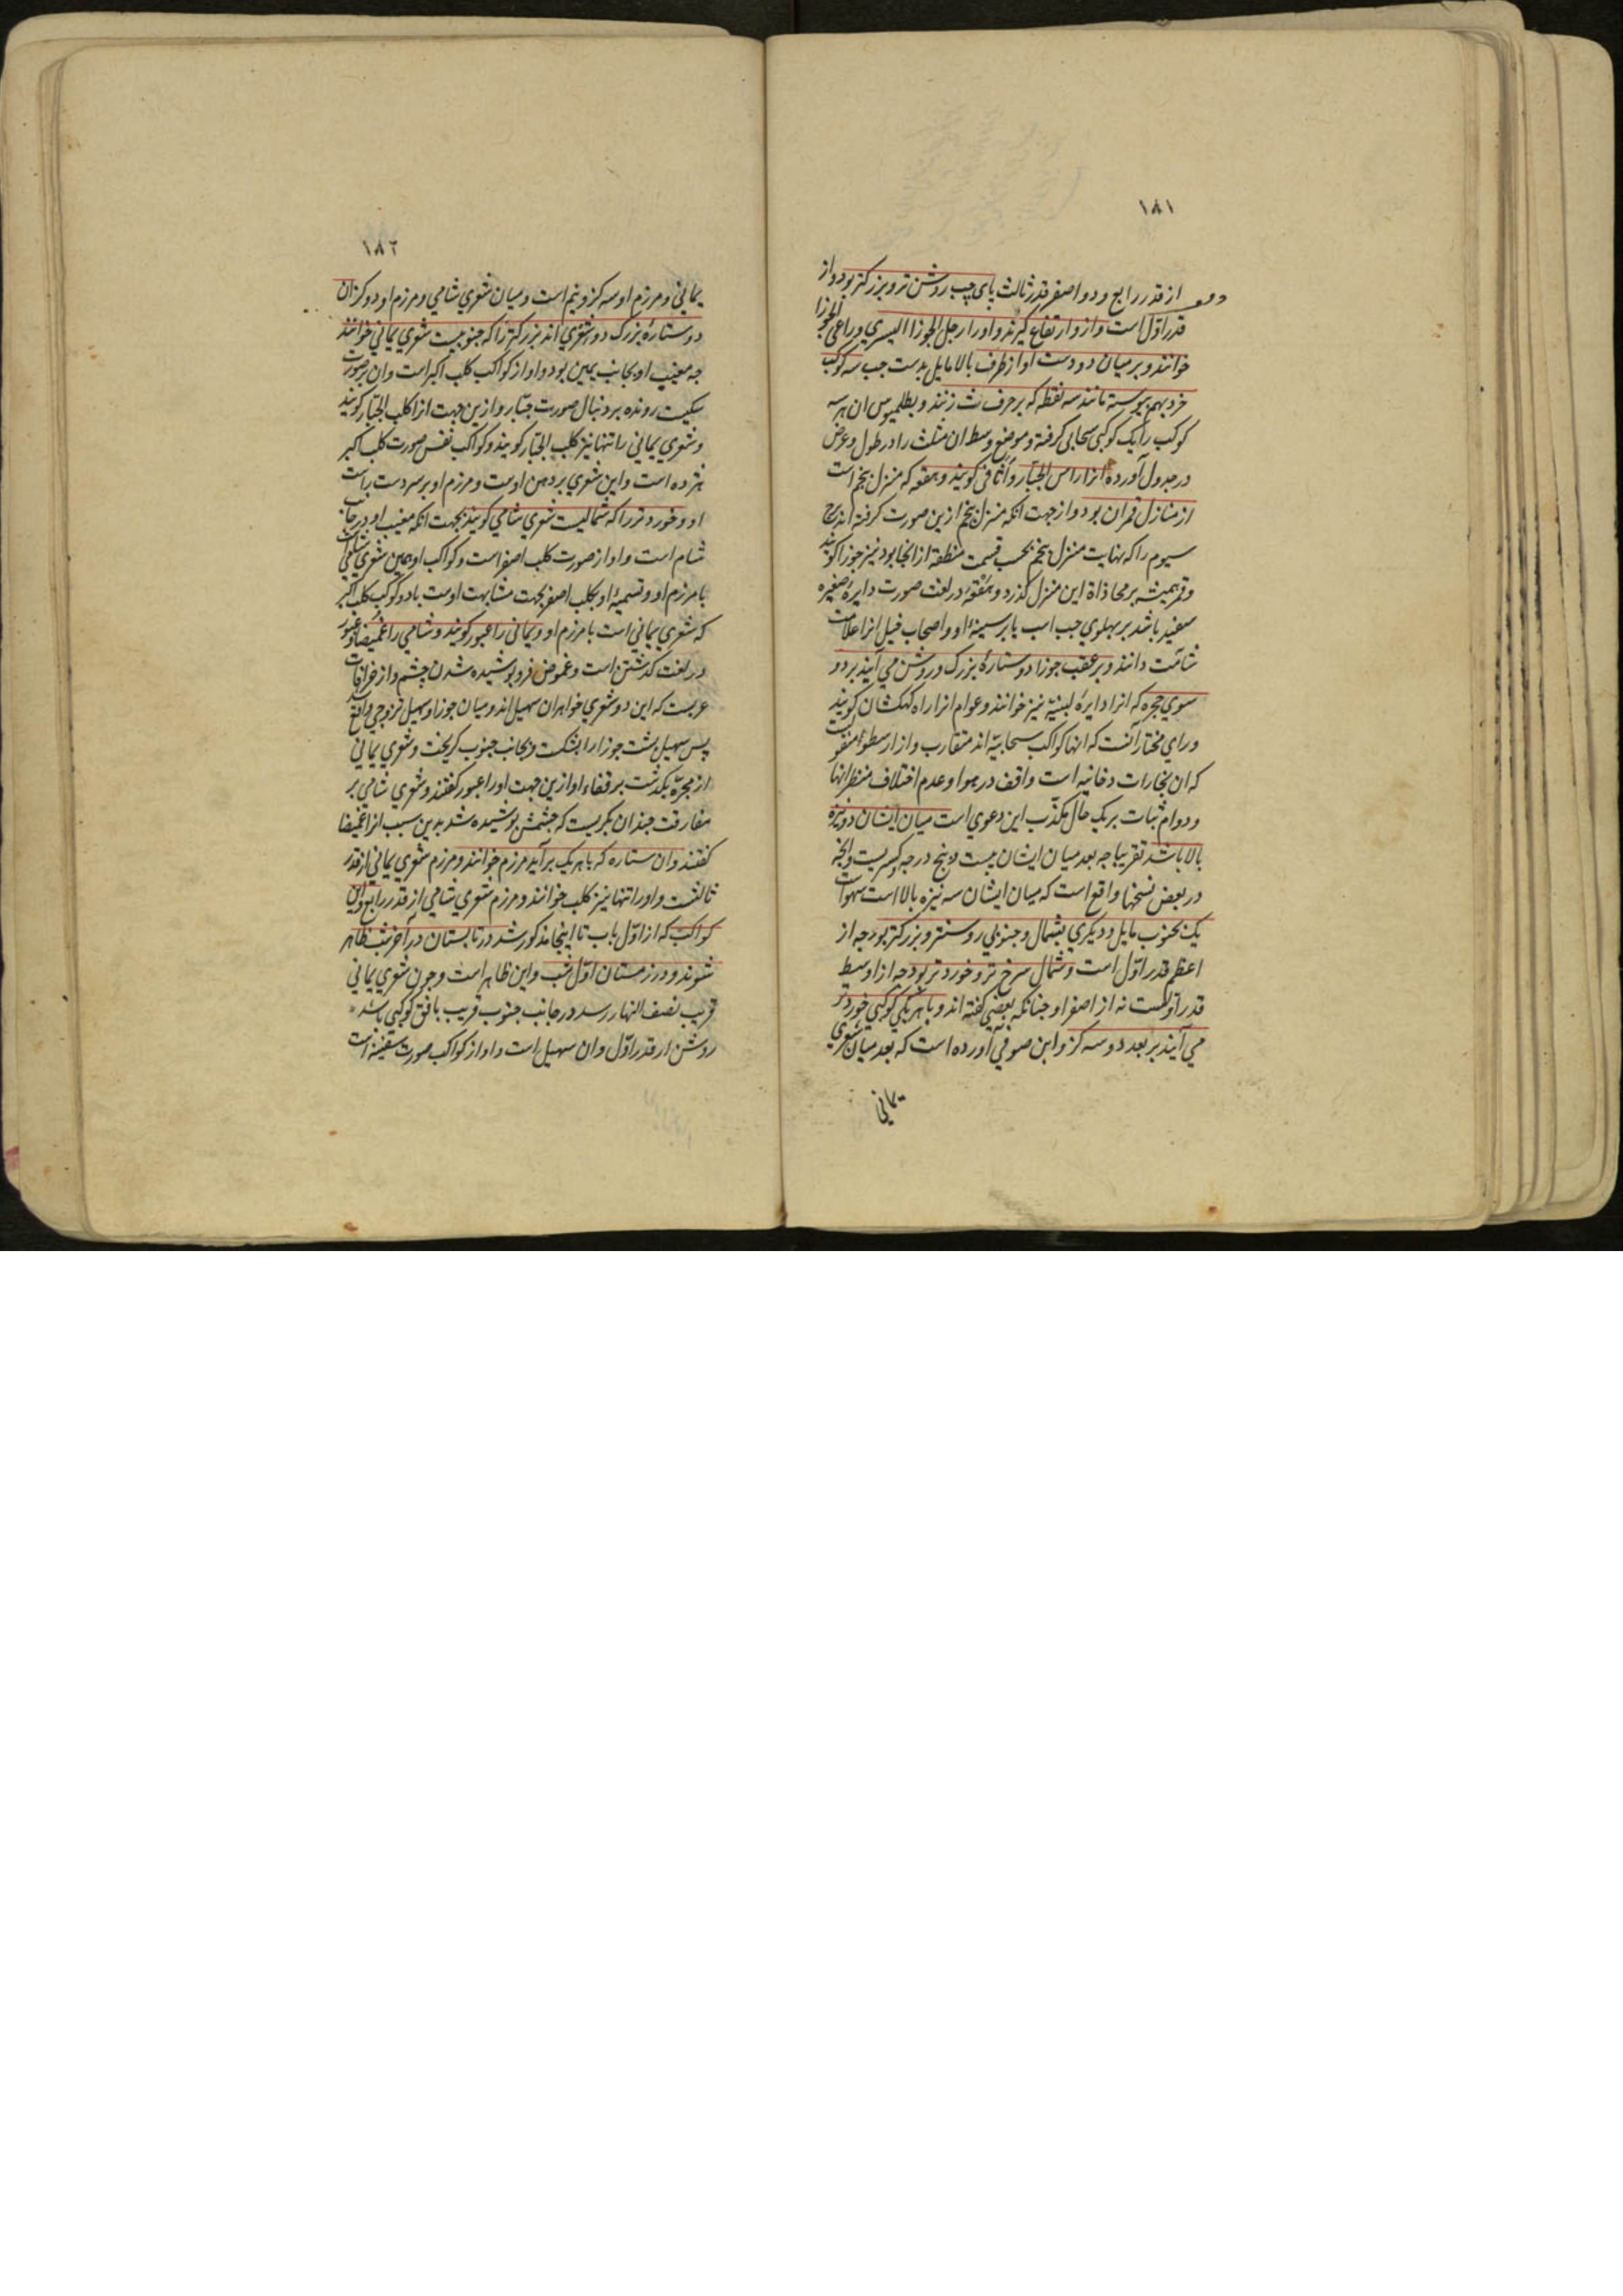 ١٨١
از قدر رابع و دو اصغر قدر ثالث پای چپ روشن تر و بزرکتر بود و از
قدر اوّل است و ازو ارتفاع کیرند و اورا رجل الجوزا الیسری و راعی الجوزا
خوانند و بر میان دو دست او از طرف بالا مایل بدست جب سه کوکب
خرد بهم پیوسته مانند سه نقطه که بر حرف ث زنند و بطلمیوس ان هر سه
کوکب را یک کوکبی سحابی کرفته و موضع وسط ان مثلث را در طول و عرض
در جدول آورده آنرا راس الجبّار و اثافی کویند و هقعه که منزل پنجم است
از منازل قمر ان بود و از جهت انکه منزل پنجم ازین صورت کرفته اند برج
سیوم را که نهایت منزل پنجم بحسب قسمت منطقه از انجا بود نیز جوزا کویند
و قمر همیشه بر محاذاة این منزل کذرد و هقعه در لغت صورت دایرهٔ صغیره
سفید باشد بر پهلوی جب اسب یا بر سینهٔ او و اصحاب خیل انرا علامت
شآمت دانند و بر عقب جوزا دو ستارهٔ بزرک و روشن می آیند بر دو
سوی مجره که انرا دایرهٔ لبنیّه نیز خوانند و عوام انرا راه کهکشان کویند
و رای مختار آنست که انها کواکب سحابیّه اند متقارب و از ارسطو منقولست
که ان بخارات دخانیه است واقف در هوا و عدم اختلاف منظر انها
و دوام ثبات بر یک حال مکذّب این دعوی است میان ایشان دو نیزه
بالا باشد تقریبا چه بعد میان ایشان بیست و پنج درجه و کسریست و انچه
در بعض نسخها واقع است که میان ایشان سه نیزه بالا است سهوست
یک بجنوب مایل و دیکری بشمال و جنوبی روشنتر و بزرکتر بود چه از
اعظم قدر اوّل است و شمال سرخ تر و خورد تر بود چه از اوسط
قدر اوّلست نه از اصغر او چنانکه بعضی کفته اند و با هر یکی کوکبی خورد تر
می آیند بر بعد دو سه کز و ابن صوفی آورده است که بعد میان شعری
یمانی
١٨٢
یمانی و مرزم او سه کز و نیم است و میان شعری شامی و مرزم او دو کز ان
دو ستارهٔ بزرک دو شعری اند بزرکتر را که جنوبیست شعری یمانی خوانند
چه مغیب او بجانب یمین بود و او از کواکب کلب اکبر است و ان بر صورت
سکیست رونده بر دنبال صورت جبّار و ازین جهت انرا کلب الجبّار کویند
و شعری یمانی را تنها نیز کلب الجبّار کویند و کواکب نفس صورت کلب اکبر
هژده است و این شعری بر دهن اوست و مرزم او بر سر دست راست
او و خورد تر را که شمالیست شعری شامی کویند بجهت انکه مغیب او در جانب
شام است و او از صورت کلب اصغر است و کواکب او همین شعری شامی
با مرزم او و تسمیهٔ او بکلب اصغر بجهت مشابهت اوست با دو کوکب کلب اکبر
که شعری یمانی است با مرزم او و یمانی را عبور کویند و شامی را غمیضا و عبور
در لغت کذشتن است و غموض فرو پوشیده شدن چشم و از خرافات
عربست که این دو شعری خواهران سهیل اند و میان جوزا و سهیل تزوجی واقع شد
پس سهیل پشت جوزا را بشکست و بجانب جنوب کریخت و شعری یمانی
از مجرّه بکذشت بر قفاء او ازین جهت اورا عبور کفتند و شعری شامی بر
مفارقت چندان بکریست که چشمش پوشیده شد بدین سبب انرا غمیضا
کفتند و ان ستاره که با هر یک برآید مرزم خوانند و مرزم شعری یمانی از قدر
ثالثست و اورا تنها نیز کلب خوانند و مرزم شعری شامی از قدر رابع و این
کواکب که از اوّل باب تا اینجا مذکور شد در تابستان در آخر شب ظاهر
شوند و در زمستان اوّل شب و این ظاهر است و جون شعری یمانی
قریب نصف النهار رسد در جانب جنوب قریب بافق کوکبی باشد
روشن از قدر اوّل و ان سهیل است و او از کواکب صورت سفینه است